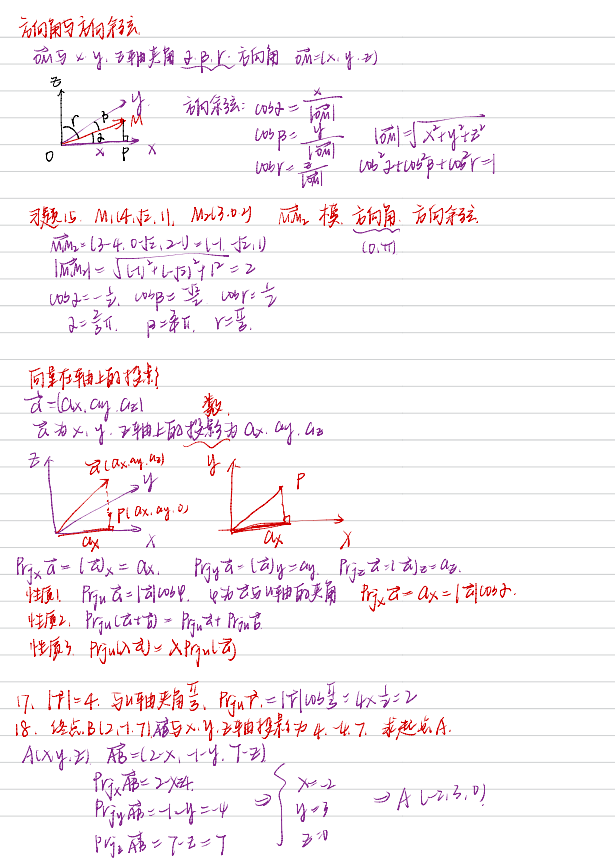 方向角与方向余弦
OM与x.y.z轴夹角 α.β.γ.方向角 OM=(x,y,z)
z
y
γ β M
α
O x P x
方向余弦: cosα = x/|OM|
cosβ = y/|OM| |OM|=√x²+y²+z²
cosγ = z/|OM| cos²α+cos²β+cos²γ=1
习题15. M₁(4,√2,1), M₂(3.0.2) M₁M₂ 模. 方向角. 方向余弦.
M₁M₂=(3-4,0-√2,2-1)=(-1,-√2,1) (0,π)
|M₁M₂|=√(-1)²+(-√2)²+1²=2
cosα=-1/2, cosβ=-√2/2 cosγ=1/2
α=2/3π. β=3/4π. γ=π/3.
向量在轴上的投影
a=(ax,ay,az) 数.
a为x,y.z轴上的投影为ax.ay,az
z a(ax,ay,az) y P
y
P(ax,ay,0)
ax x ax x
Prjxa=(a)x=ax, Prjya=(a)y=ay, Prjza=(a)z=az.
性质1, Prjua=|a|cosφ, φ为a与u轴的夹角 Prjxa=ax=|a|cosα.
性质2, Prju(a+b)=Prjua+Prjub
性质3. Prju(λa)=λPrju(a)
17, |r|=4. 与u轴夹角π/3, Prjur=|r|cosπ/3=4×1/2=2
18. 终点B(2,-1,7) AB与x.y.z轴投影为4.-4.7, 求起点A.
A(x,y,z) AB=(2-x,-1-y,7-z)
PrjxAB=2-x=4. x=-2
PrjyAB=-1-y=-4 ⇒ y=3 ⇒ A(-2,3,0)
PrjzAB=7-z=7 z=0